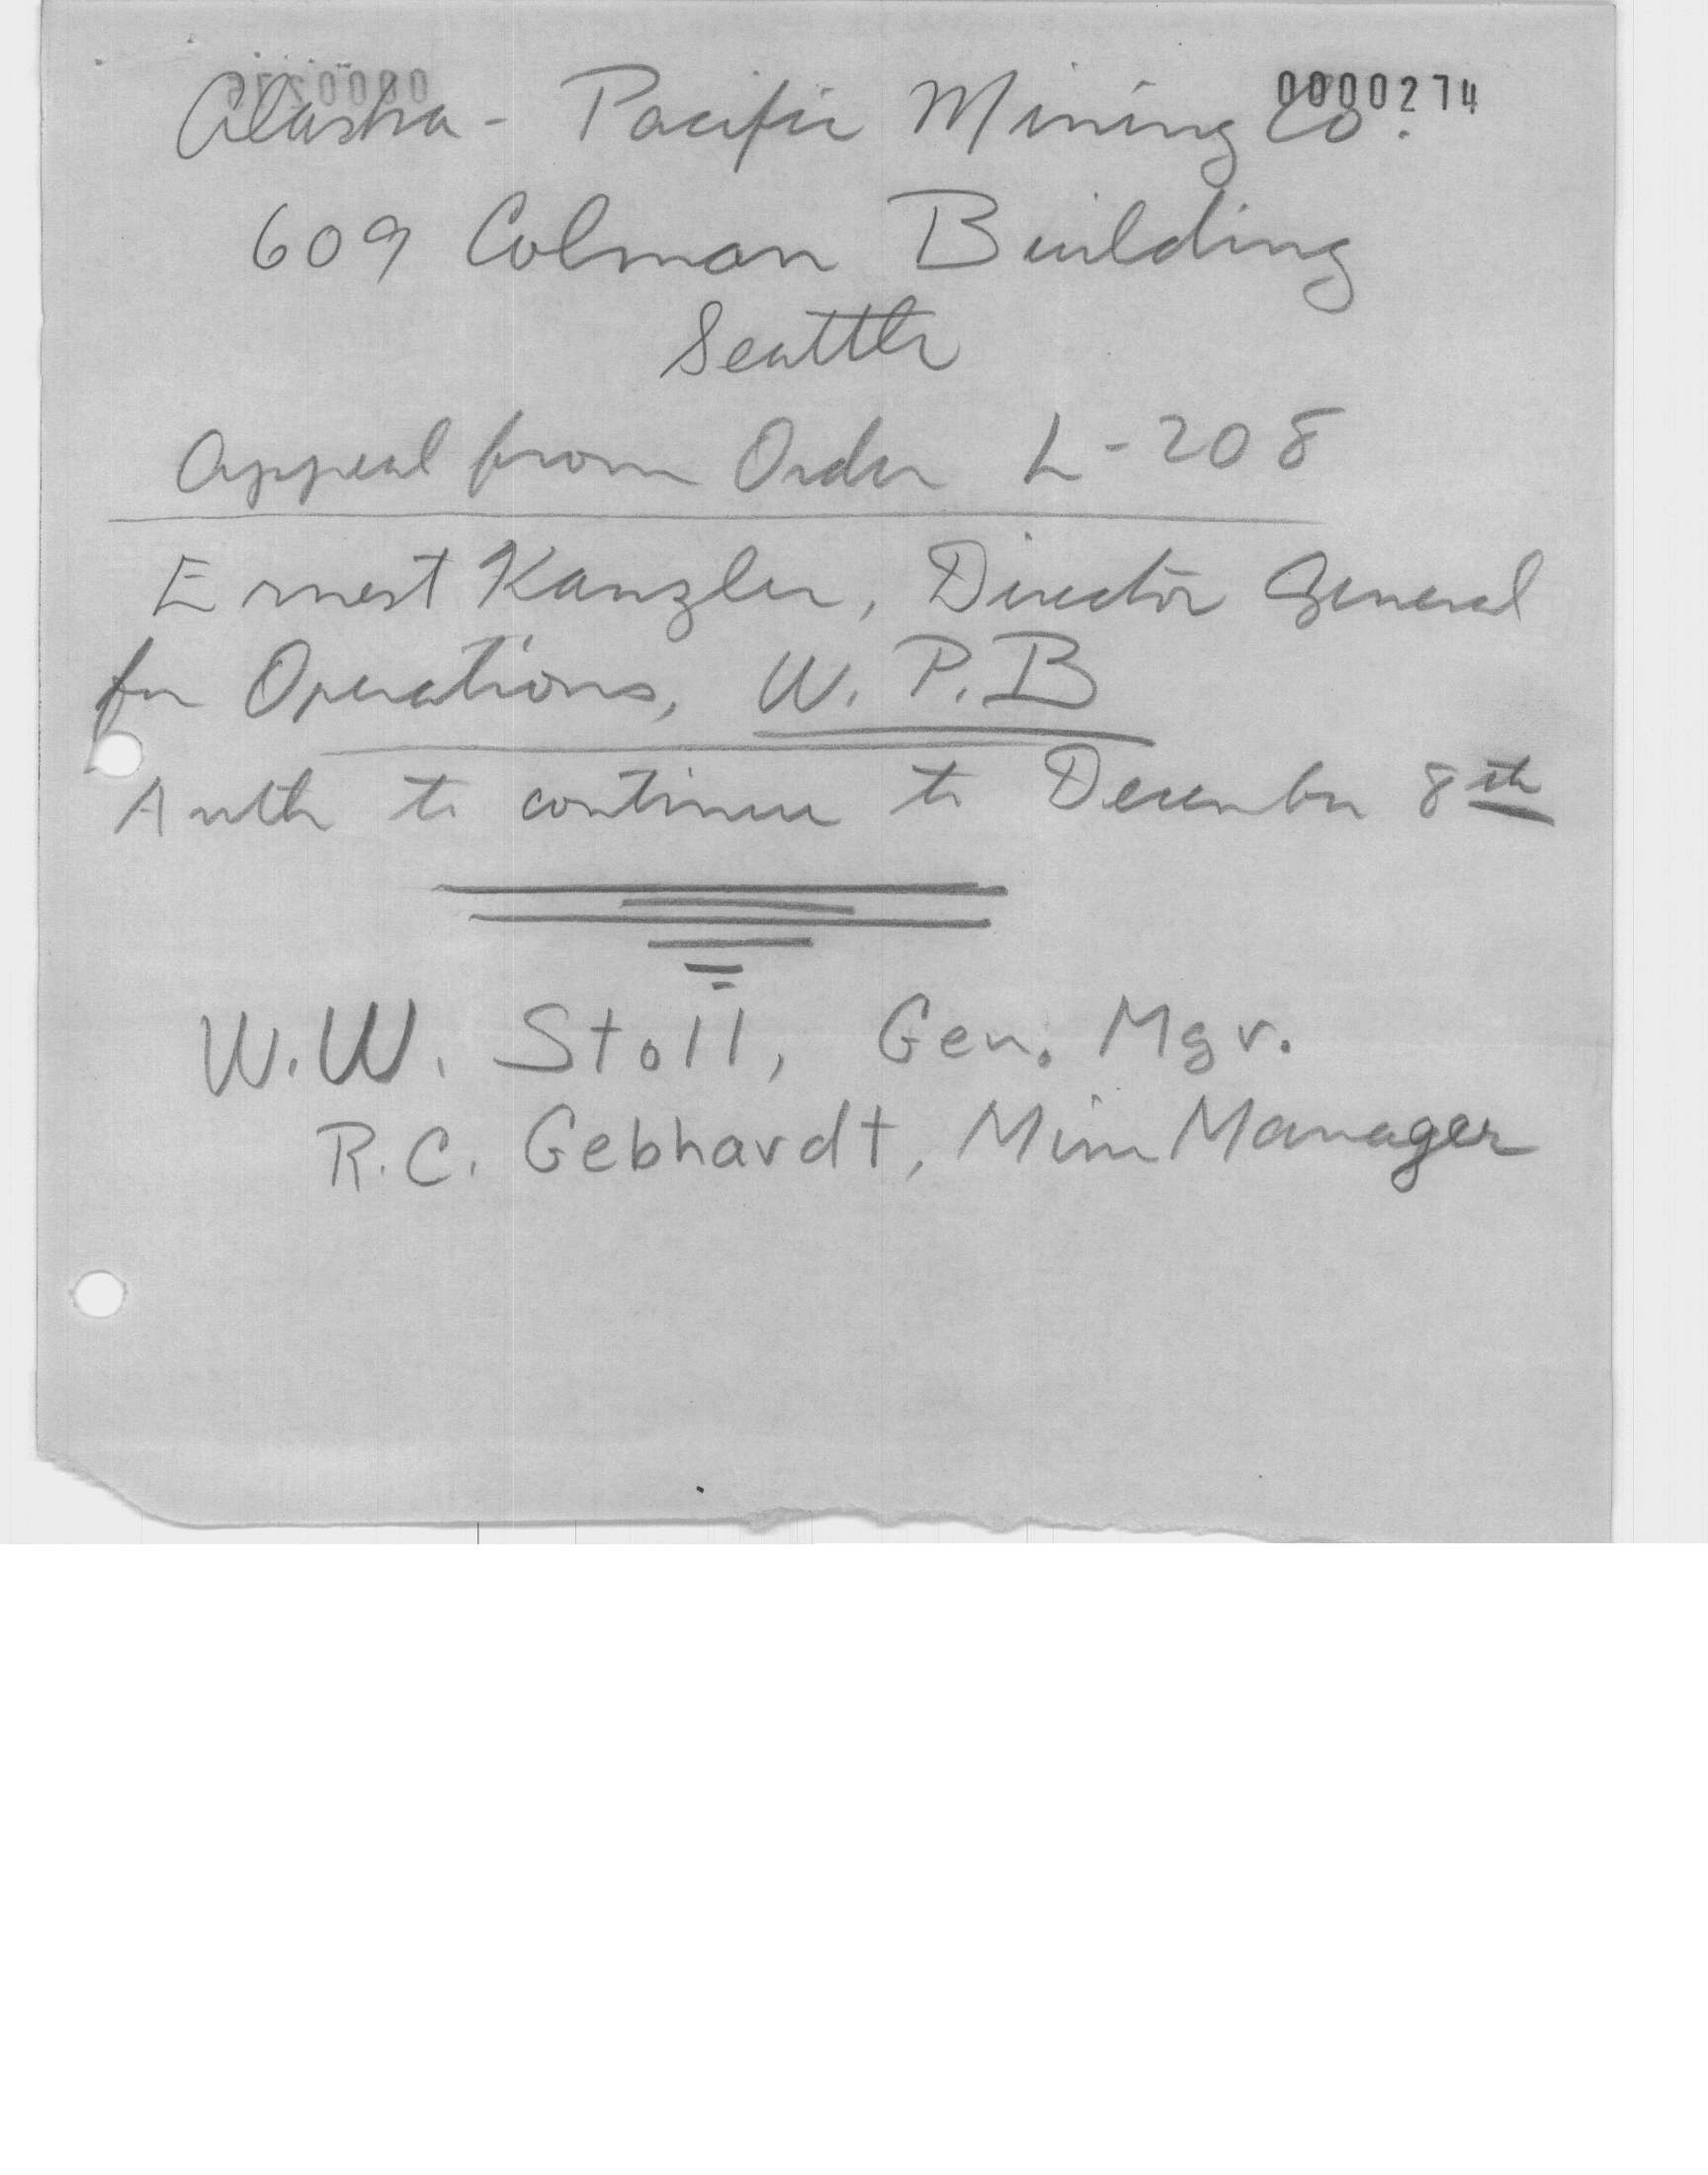 0000274
Alaska - Pacific Mining Co.
609 Colman Building
Seattle
Appeal from Order L-208
Ernest Kanzler, Director General
for Operations, W. P. B
Auth to continue to December 8th
W. W. Stoll, Gen. Mgr.
R. C. Gebhardt, Mine Manager